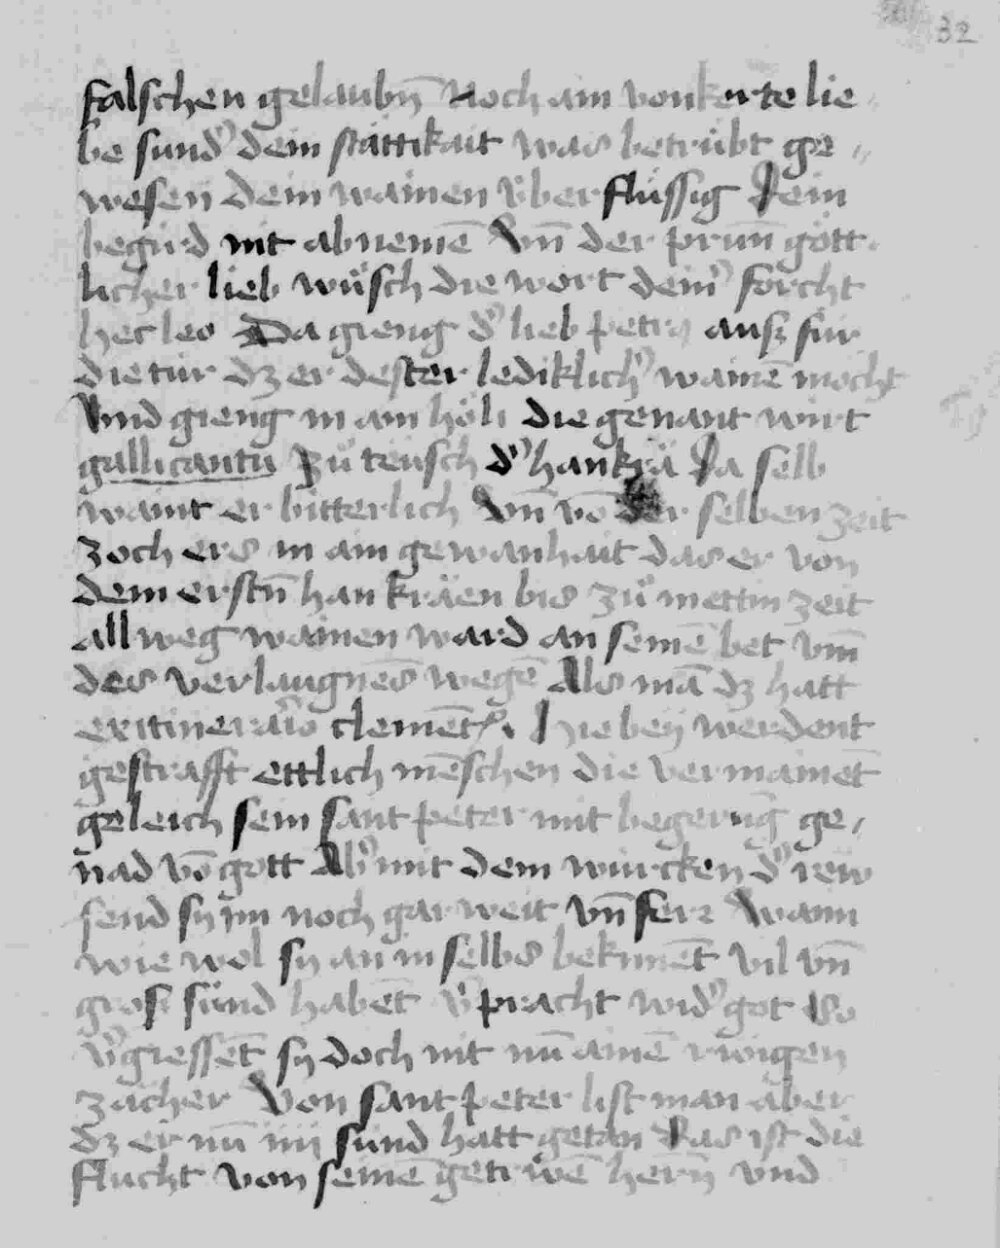 32
falschen gelaubn̄ Noch ain vonkerte lie
be sund' dein stättikait was betrübt ge„
wesen dein wainen v̈berflüssig Dein
begird nit abnemē Vn̄ der prun̄ gött
licher lieb wüsch die wort dein' forcht
hec leo Da gieng d' lieb petrꝰ ausz für
die tür dz er dester lediklich' wainē mocht
Vnd gieng in ain höli die genant wirt
gallicantu Zů teusch d' hankrä Da selb
waint er bitterlich Vn̄ vō der selben zeit
zoch ers in ain gewanhait das er von
dem erstn̄ han kräen bis zů mettin zeit
allweg wainen ward an seinē bet vm̄
des verlaugnēs wegē Als mā dz hatt
ex itinerario clemēt. Hie beÿ werdent
gestrafft ettlich mēschen die vermainēt
geleich sein sant peter mit begerūg ge„
nad vō gott Ab' mit dem würcken d' rew
send sÿ im noch gar weit vn̄ ferr Wann
wie wol sÿ an in selbs bekennēt vil vn̄
gross sünd habēt v'pracht wid' got So
v'giessēt sÿ doch nit nū ainē rwigen
zächer Von sant peter list man aber
dz er nū iiij sünd hatt getan Das ist die
flucht von seinē getrẅē hern̄ vnd